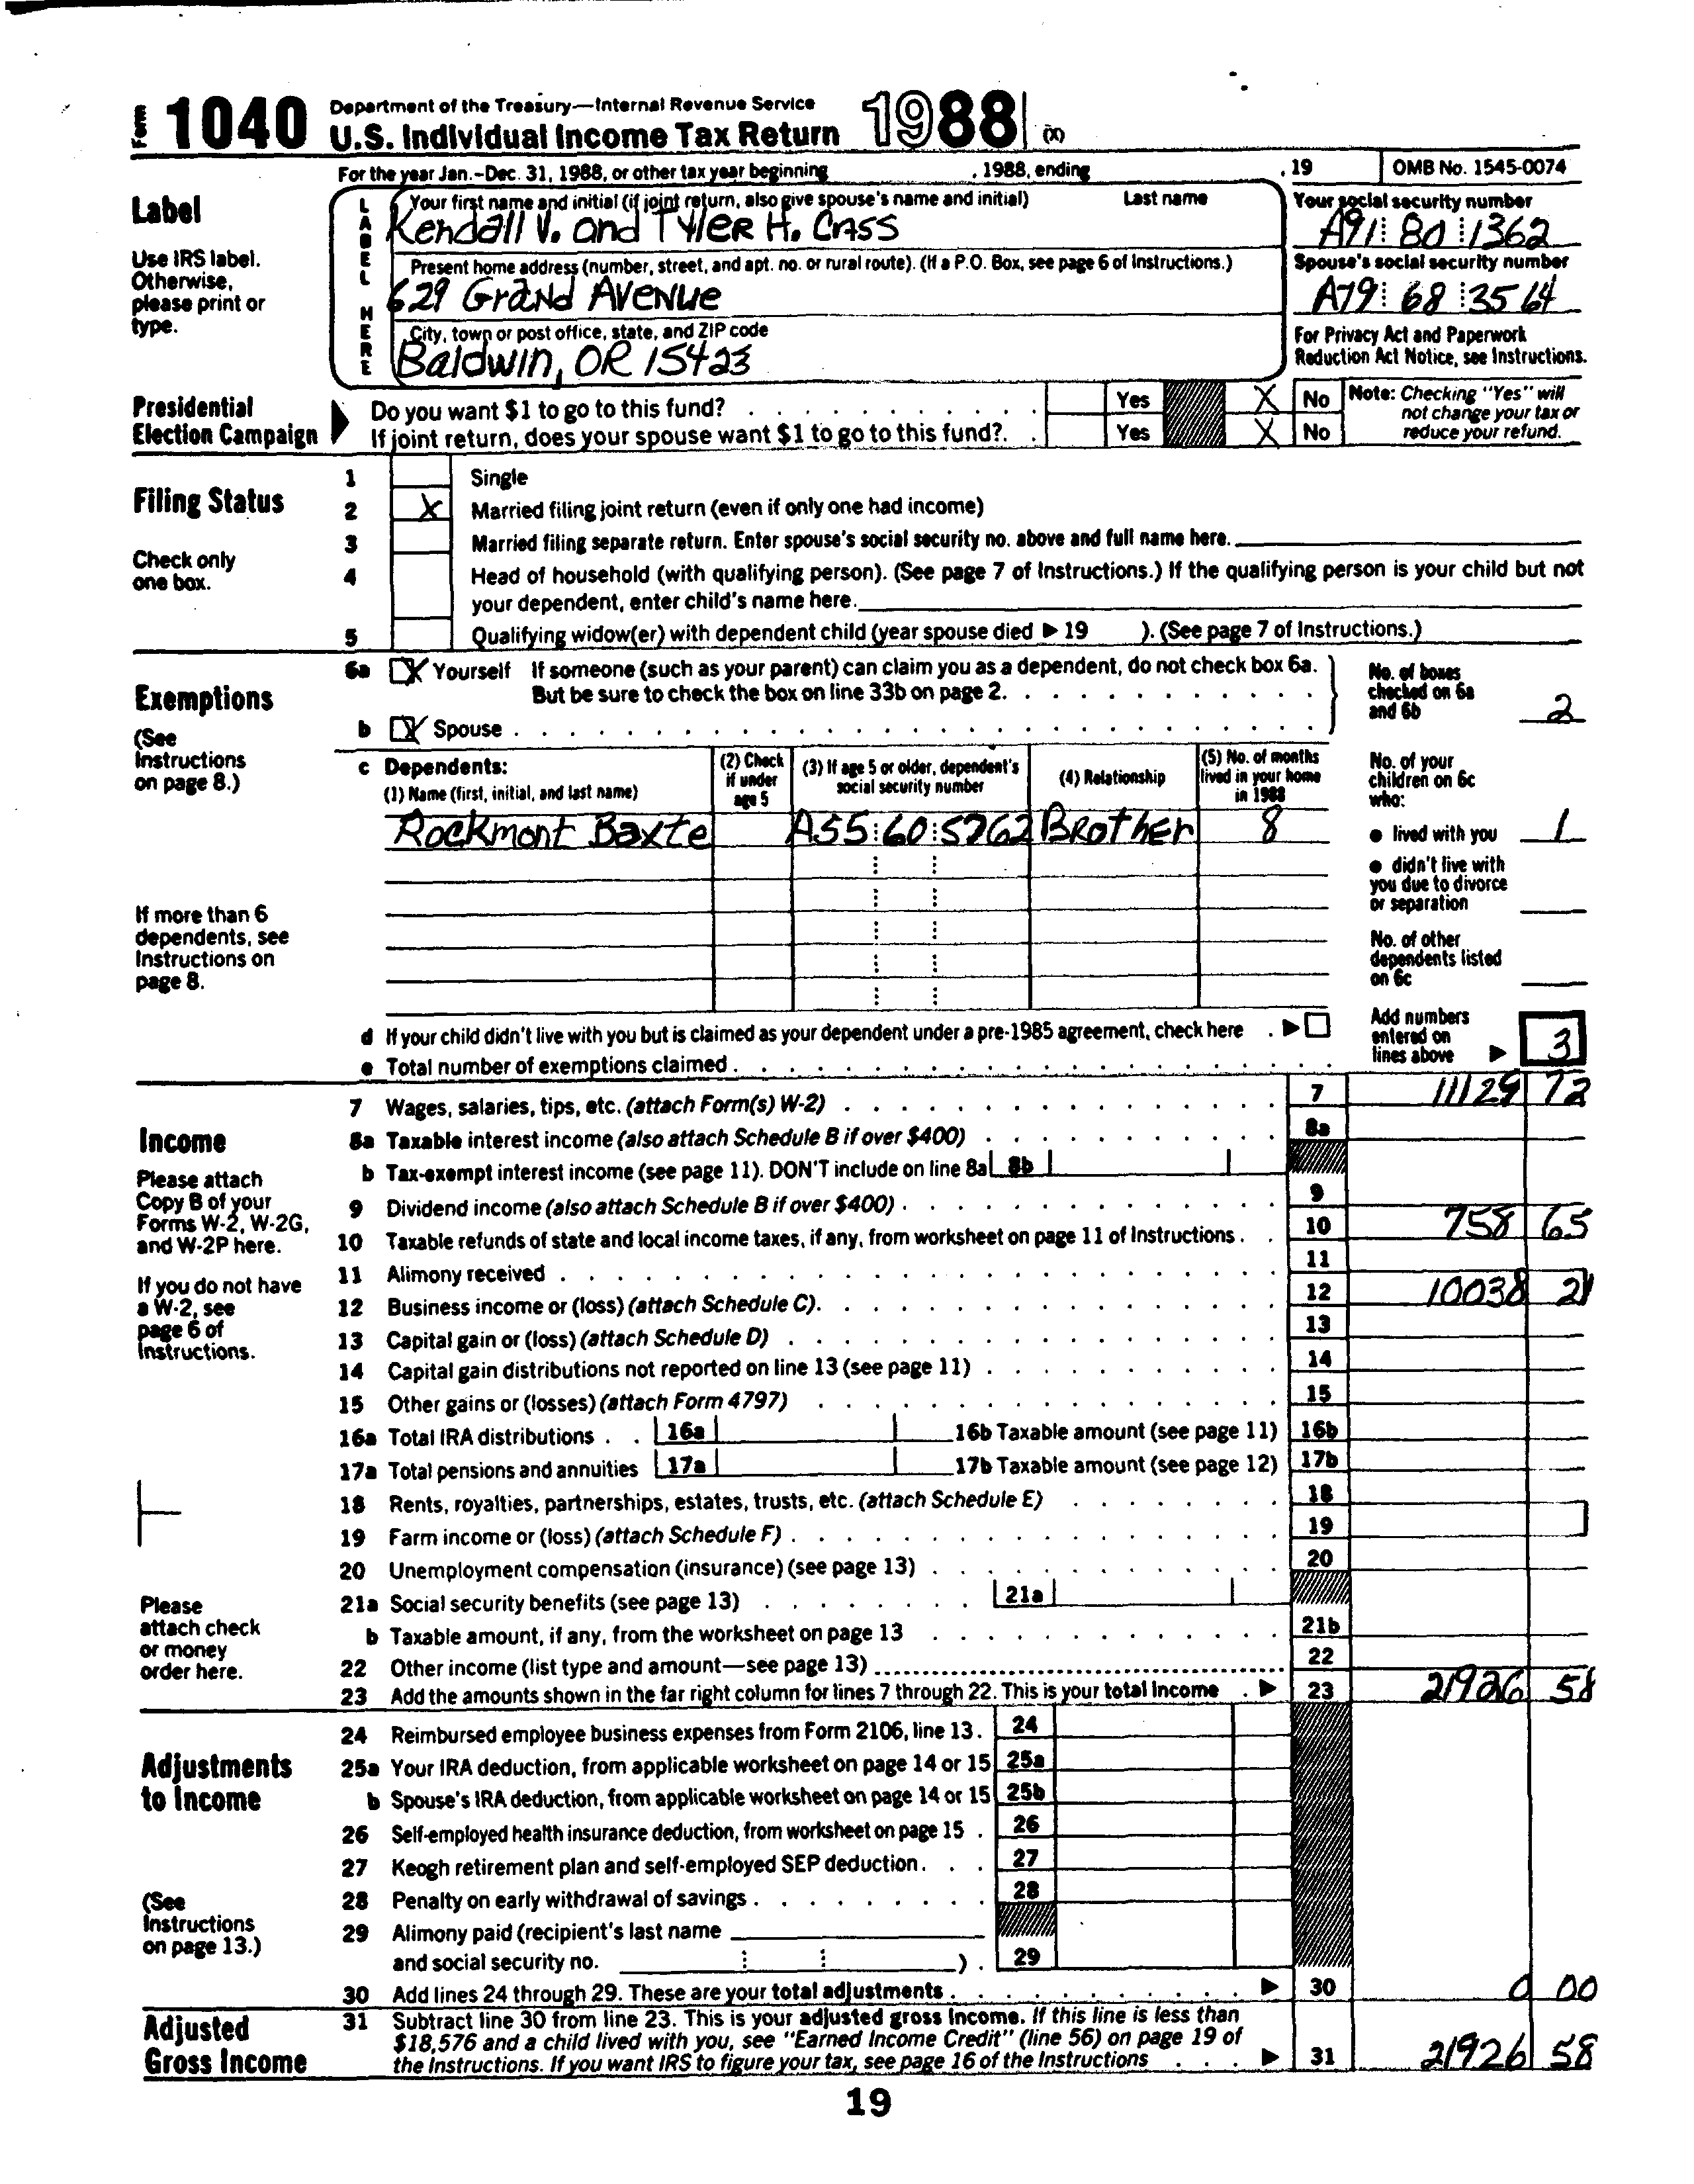 Form 1040 Department of the Treasury—Internal Revenue Service
U.S. Individual Income Tax Return 1988 (X)
For the year Jan.–Dec. 31, 1988, or other tax year beginning , 1988, ending , 19 OMB No. 1545-0074
Label
Use IRS label.
Otherwise,
please print or
type.
LABEL HERE
Your first name and initial (if joint return, also give spouse's name and initial) Last name
Kendall V. and Tyler H. Cass
Your social security number
A91 80 1362
Present home address (number, street, and apt. no. or rural route). (If a P.O. Box, see page 6 of Instructions.)
629 Grand Avenue
Spouse's social security number
A79 68 3564
City, town or post office, state, and ZIP code
Baldwin, OR 15423
For Privacy Act and Paperwork
Reduction Act Notice, see Instructions.
Presidential
Election Campaign
Do you want $1 to go to this fund? Yes X No
If joint return, does your spouse want $1 to go to this fund?. Yes X No
Note: Checking "Yes" will
not change your tax or
reduce your refund.
Filing Status
Check only
one box.
1 Single
2 X Married filing joint return (even if only one had income)
3 Married filing separate return. Enter spouse's social security no. above and full name here.
4 Head of household (with qualifying person). (See page 7 of Instructions.) If the qualifying person is your child but not
your dependent, enter child's name here.
5 Qualifying widow(er) with dependent child (year spouse died ▶ 19 ). (See page 7 of Instructions.)
Exemptions
(See
Instructions
on page 8.)
If more than 6
dependents, see
Instructions on
page 8.
6a X Yourself If someone (such as your parent) can claim you as a dependent, do not check box 6a.
But be sure to check the box on line 33b on page 2.
b X Spouse
No. of boxes
checked on 6a
and 6b 2
c Dependents:
(1) Name (first, initial, and last name)
(2) Check
if under
age 5
(3) If age 5 or older, dependent's
social security number
(4) Relationship
(5) No. of months
lived in your home
in 1988
Rockmont Baxte A55 60 5762 Brother 8
No. of your
children on 6c
who:
● lived with you 1
● didn't live with
you due to divorce
or separation
No. of other
dependents listed
on 6c
d If your child didn't live with you but is claimed as your dependent under a pre-1985 agreement, check here . ▶
e Total number of exemptions claimed
Add numbers
entered on
lines above ▶ 3
Income
Please attach
Copy B of your
Forms W-2, W-2G,
and W-2P here.
If you do not have
a W-2, see
page 6 of
Instructions.
Please
attach check
or money
order here.
7 Wages, salaries, tips, etc. (attach Form(s) W-2) 7 11129 72
8a Taxable interest income (also attach Schedule B if over $400) 8a
b Tax-exempt interest income (see page 11). DON'T include on line 8a 8b
9 Dividend income (also attach Schedule B if over $400) 9
10 Taxable refunds of state and local income taxes, if any, from worksheet on page 11 of Instructions. 10 758 65
11 Alimony received 11
12 Business income or (loss) (attach Schedule C). 12 10038 21
13 Capital gain or (loss) (attach Schedule D) 13
14 Capital gain distributions not reported on line 13 (see page 11) 14
15 Other gains or (losses) (attach Form 4797) 15
16a Total IRA distributions 16a 16b Taxable amount (see page 11) 16b
17a Total pensions and annuities 17a 17b Taxable amount (see page 12) 17b
18 Rents, royalties, partnerships, estates, trusts, etc. (attach Schedule E) 18
19 Farm income or (loss) (attach Schedule F) 19
20 Unemployment compensation (insurance) (see page 13) 20
21a Social security benefits (see page 13) 21a
b Taxable amount, if any, from the worksheet on page 13 21b
22 Other income (list type and amount—see page 13) 22
23 Add the amounts shown in the far right column for lines 7 through 22. This is your total income ▶ 23 21926 58
Adjustments
to Income
(See
Instructions
on page 13.)
24 Reimbursed employee business expenses from Form 2106, line 13. 24
25a Your IRA deduction, from applicable worksheet on page 14 or 15 25a
b Spouse's IRA deduction, from applicable worksheet on page 14 or 15 25b
26 Self-employed health insurance deduction, from worksheet on page 15 26
27 Keogh retirement plan and self-employed SEP deduction. 27
28 Penalty on early withdrawal of savings 28
29 Alimony paid (recipient's last name
and social security no. ). 29
30 Add lines 24 through 29. These are your total adjustments ▶ 30 0 00
Adjusted
Gross Income
31 Subtract line 30 from line 23. This is your adjusted gross income. If this line is less than
$18,576 and a child lived with you, see "Earned Income Credit" (line 56) on page 19 of
the Instructions. If you want IRS to figure your tax, see page 16 of the Instructions ▶ 31 21926 58
19